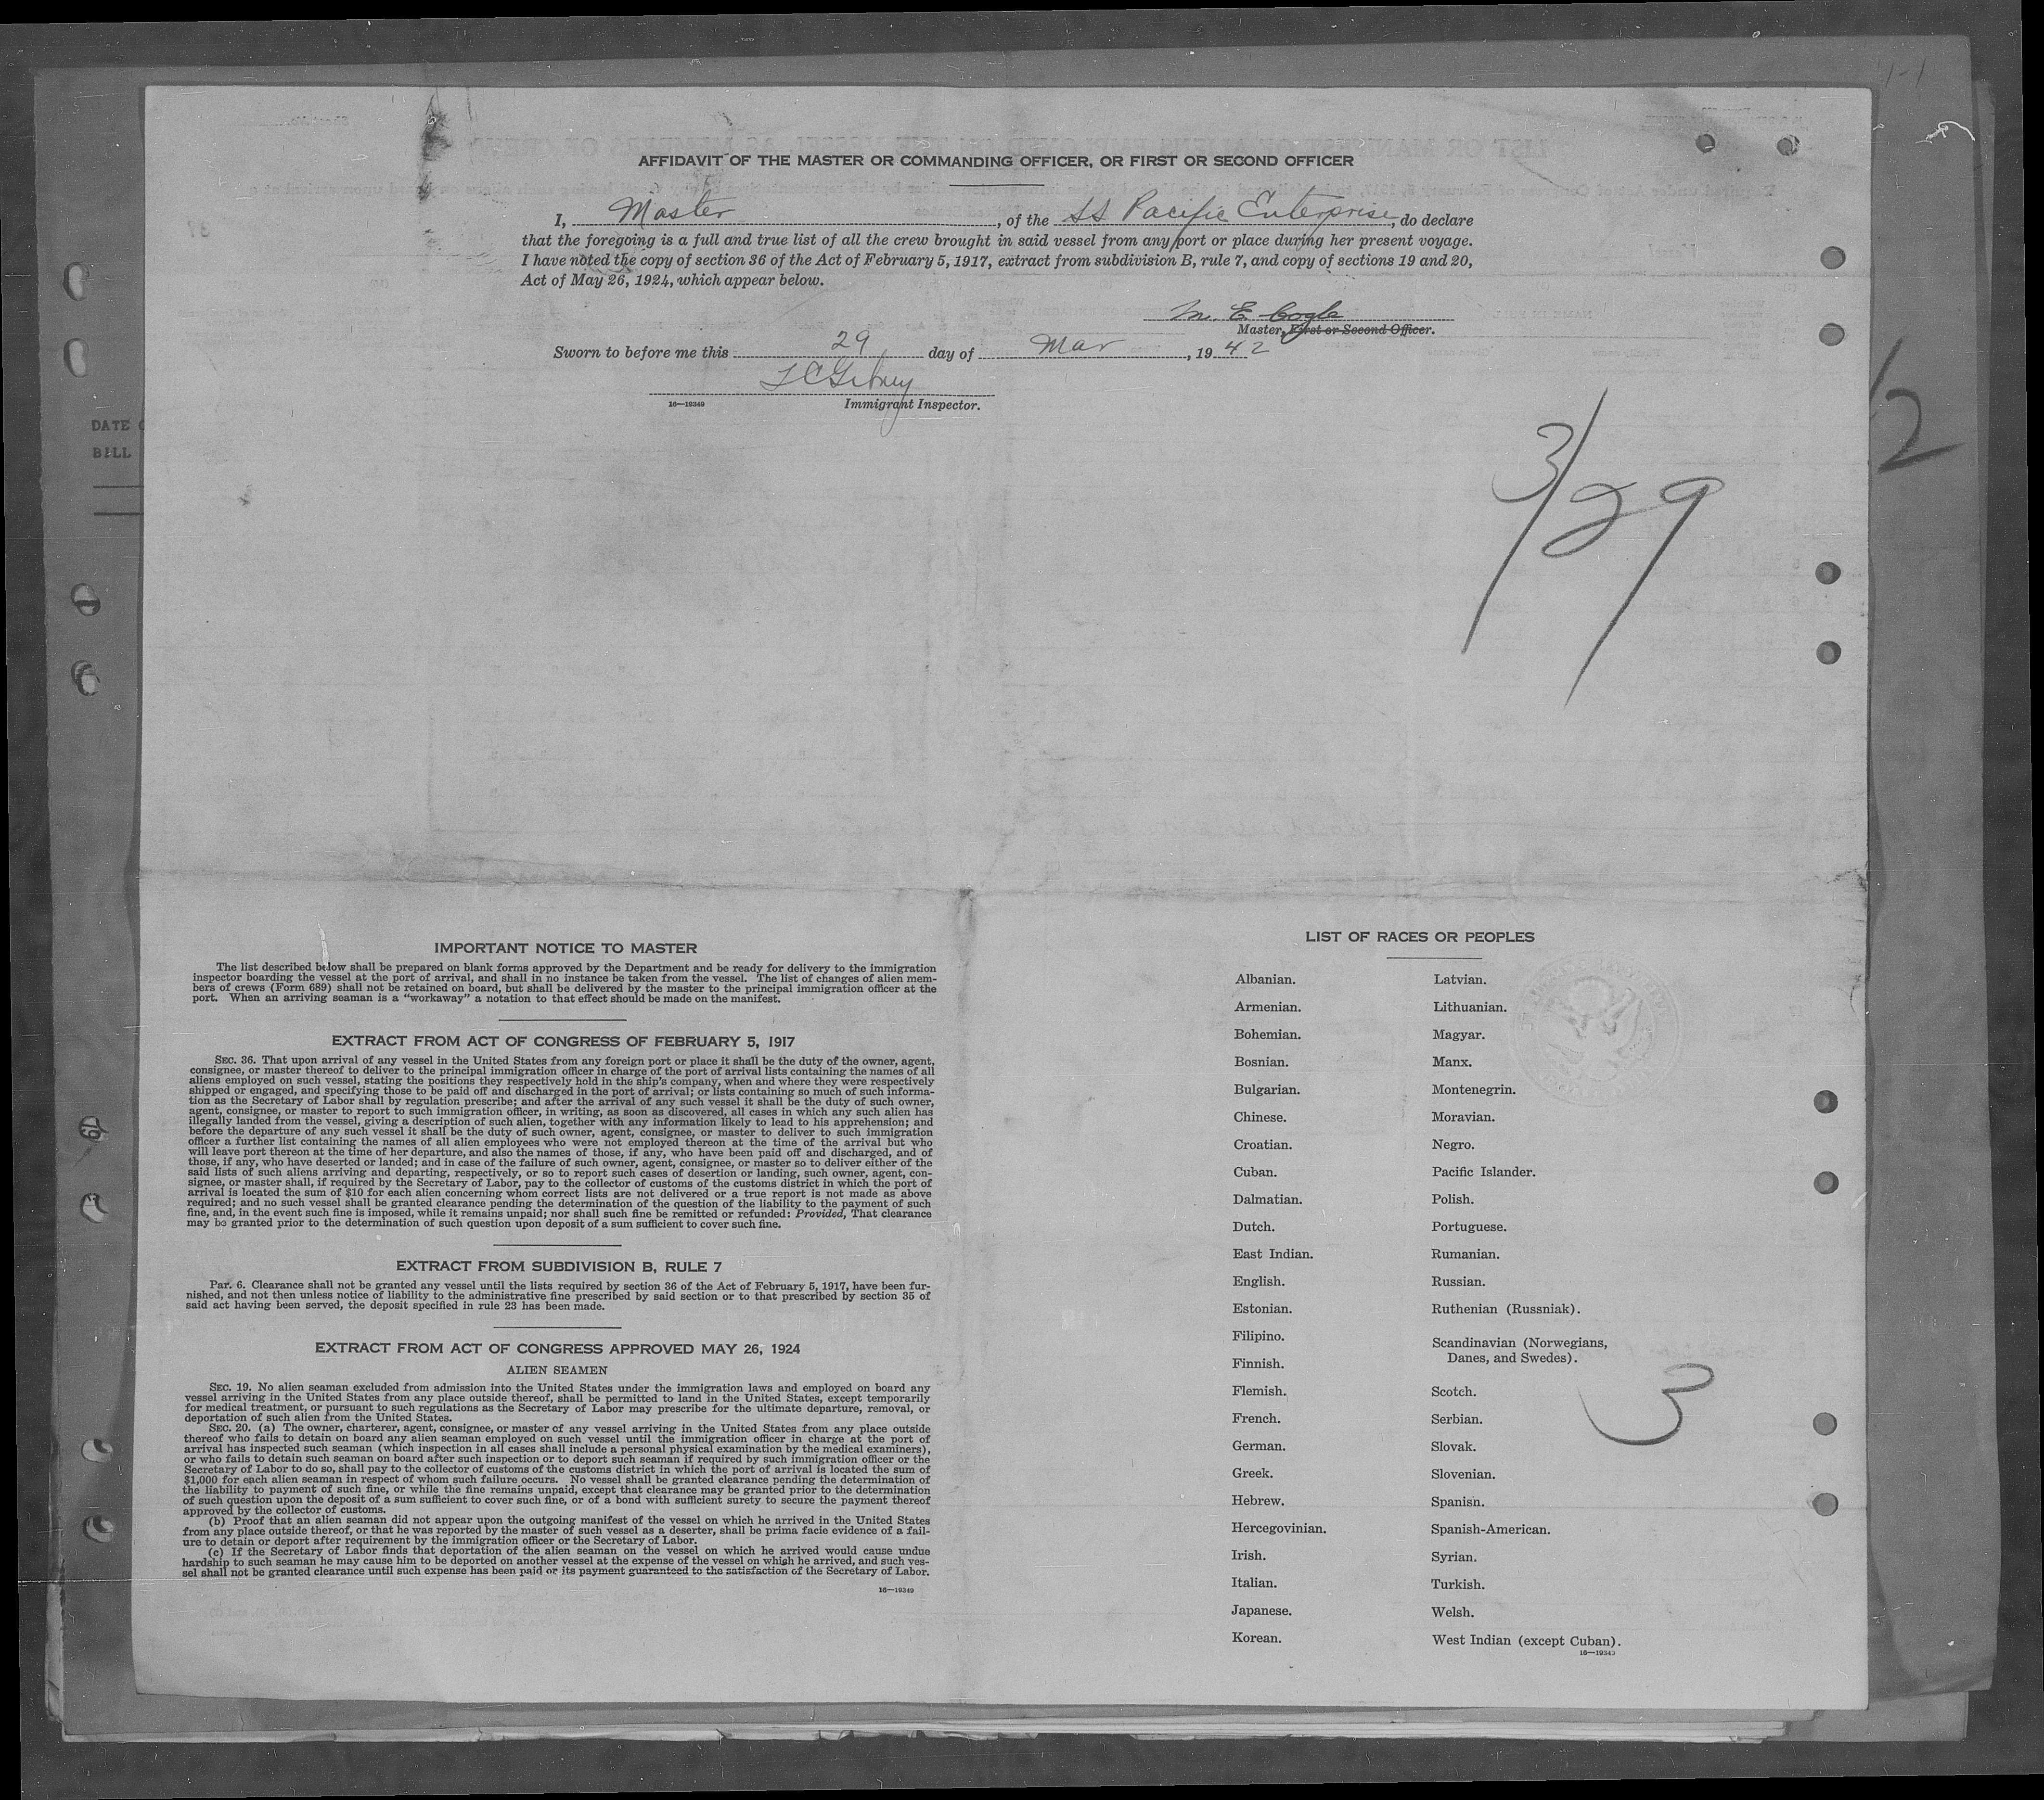 AFFIDAVIT OF THE MASTER OR COMMANDING OFFICER, OR FIRST OR SECOND OFFICER
I, Master, of the SS Pacific Enterprise, do declare
that the foregoing is a full and true list of all the crew brought in said vessel from any port or place during her present voyage.
I have noted the copy of section 36 of the Act of February 5, 1917, extract from subdivision B, rule 7, and copy of sections 19 and 20,
Act of May 26, 1924, which appear below.
M. E. Cogle
Master, First or Second Officer.
Sworn to before me this 29 day of Mar, 1942
16—19349 Immigrant Inspector.
DATE
BILL
3/29
12
IMPORTANT NOTICE TO MASTER
The list described below shall be prepared on blank forms approved by the Department and be ready for delivery to the immigration
inspector boarding the vessel at the port of arrival, and shall in no instance be taken from the vessel. The list of changes of alien mem-
bers of crews (Form 689) shall not be retained on board, but shall be delivered by the master to the principal immigration officer at the
port. When an arriving seaman is a "workaway" a notation to that effect should be made on the manifest.
EXTRACT FROM ACT OF CONGRESS OF FEBRUARY 5, 1917
SEC. 36. That upon arrival of any vessel in the United States from any foreign port or place it shall be the duty of the owner, agent,
consignee, or master thereof to deliver to the principal immigration officer in charge of the port of arrival lists containing the names of all
aliens employed on such vessel, stating the positions they respectively hold in the ship's company, when and where they were respectively
shipped or engaged, and specifying those to be paid off and discharged in the port of arrival; or lists containing so much of such informa-
tion as the Secretary of Labor shall by regulation prescribe; and after the arrival of any such vessel it shall be the duty of such owner,
agent, consignee, or master to report to such immigration officer, in writing, as soon as discovered, all cases in which any such alien has
illegally landed from the vessel, giving a description of such alien, together with any information likely to lead to his apprehension; and
before the departure of any such vessel it shall be the duty of such owner, agent, consignee, or master to deliver to such immigration
officer a further list containing the names of all alien employees who were not employed thereon at the time of the arrival but who
will leave port thereon at the time of her departure, and also the names of those, if any, who have been paid off and discharged, and of
those, if any, who have deserted or landed; and in case of the failure of such owner, agent, consignee, or master so to deliver either of the
said lists of such aliens arriving and departing, respectively, or so to report such cases of desertion or landing, such owner, agent, con-
signee, or master shall, if required by the Secretary of Labor, pay to the collector of customs of the customs district in which the port of
arrival is located the sum of $10 for each alien concerning whom correct lists are not delivered or a true report is not made as above
required; and no such vessel shall be granted clearance pending the determination of the question of the liability to the payment of such
fine, and, in the event such fine is imposed, while it remains unpaid; nor shall such fine be remitted or refunded: Provided, That clearance
may be granted prior to the determination of such question upon deposit of a sum sufficient to cover such fine.
EXTRACT FROM SUBDIVISION B, RULE 7
Par. 6. Clearance shall not be granted any vessel until the lists required by section 36 of the Act of February 5, 1917, have been fur-
nished, and not then unless notice of liability to the administrative fine prescribed by said section or to that prescribed by section 35 of
said act having been served, the deposit specified in rule 23 has been made.
EXTRACT FROM ACT OF CONGRESS APPROVED MAY 26, 1924
ALIEN SEAMEN
SEC. 19. No alien seaman excluded from admission into the United States under the immigration laws and employed on board any
vessel arriving in the United States from any place outside thereof, shall be permitted to land in the United States, except temporarily
for medical treatment, or pursuant to such regulations as the Secretary of Labor may prescribe for the ultimate departure, removal, or
deportation of such alien from the United States.
SEC. 20. (a) The owner, charterer, agent, consignee, or master of any vessel arriving in the United States from any place outside
thereof who fails to detain on board any alien seaman employed on such vessel until the immigration officer in charge at the port of
arrival has inspected such seaman (which inspection in all cases shall include a personal physical examination by the medical examiners),
or who fails to detain such seaman on board after such inspection or to deport such seaman if required by such immigration officer or the
Secretary of Labor to do so, shall pay to the collector of customs of the customs district in which the port of arrival is located the sum of
$1,000 for each alien seaman in respect of whom such failure occurs. No vessel shall be granted clearance pending the determination of
the liability to payment of such fine, or while the fine remains unpaid, except that clearance may be granted prior to the determination
of such question upon the deposit of a sum sufficient to cover such fine, or of a bond with sufficient surety to secure the payment thereof
approved by the collector of customs.
(b) Proof that an alien seaman did not appear upon the outgoing manifest of the vessel on which he arrived in the United States
from any place outside thereof, or that he was reported by the master of such vessel as a deserter, shall be prima facie evidence of a fail-
ure to detain or deport after requirement by the immigration officer or the Secretary of Labor.
(c) If the Secretary of Labor finds that deportation of the alien seaman on the vessel on which he arrived would cause undue
hardship to such seaman he may cause him to be deported on another vessel at the expense of the vessel on which he arrived, and such ves-
sel shall not be granted clearance until such expense has been paid or its payment guaranteed to the satisfaction of the Secretary of Labor.
16—19349
LIST OF RACES OR PEOPLES
Albanian.
Armenian.
Bohemian.
Bosnian.
Bulgarian.
Chinese.
Croatian.
Cuban.
Dalmatian.
Dutch.
East Indian.
English.
Estonian.
Filipino.
Finnish.
Flemish.
French.
German.
Greek.
Hebrew.
Hercegovinian.
Irish.
Italian.
Japanese.
Korean.
Latvian.
Lithuanian.
Magyar.
Manx.
Montenegrin.
Moravian.
Negro.
Pacific Islander.
Polish.
Portuguese.
Rumanian.
Russian.
Ruthenian (Russniak).
Scandinavian (Norwegians,
Danes, and Swedes).
Scotch.
Serbian.
Slovak.
Slovenian.
Spanish.
Spanish-American.
Syrian.
Turkish.
Welsh.
West Indian (except Cuban).
16—19349
3